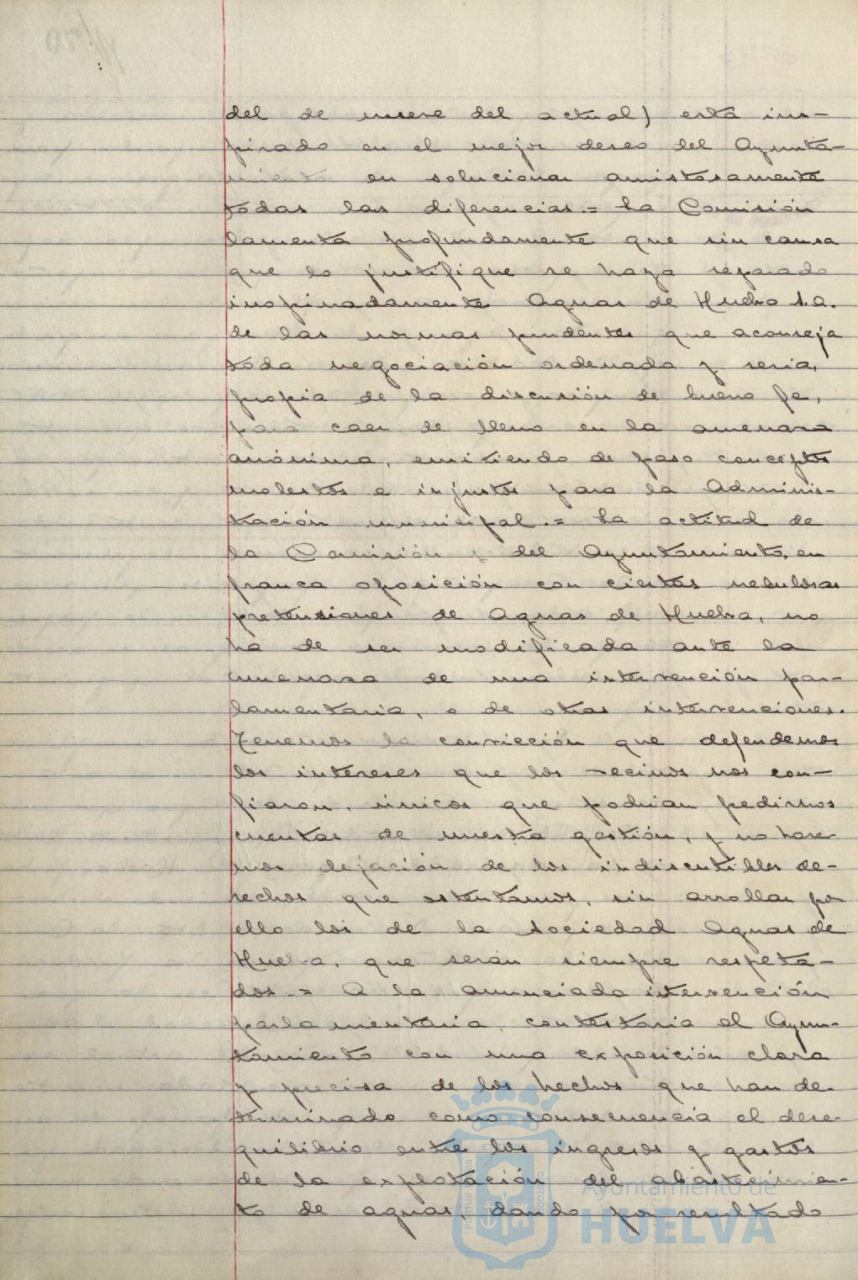 del de nueve del actual) está ins-
pirado en el mejor deseo del Ayunta-
miento en solucionar amistosamente
todas las diferencias.= La Comisión
lamenta profundamente que sin causa
que lo justifique se haya separado
inopinadamente Aguas de Huelva S.A.
de las normas prudentes que aconseja
toda negociación ordenada y seria,
propia de la discusión de buena fe,
para caer de lleno en la amenaza
anónima, emitiendo de paso conceptos
molestos e injustos para la Adminis-
tración municipal.= La actitud de
la Comisión y del Ayuntamiento, en
franca oposición con ciertas nebulosas
pretensiones de Aguas de Huelva, no
ha de ser modificada ante la
amenaza de una intervención par-
lamentaria, o de otras intervenciones.
Tenemos la convicción que defendemos
los intereses que los vecinos nos con-
fiaron, únicos que podrían pedirnos
cuentas de nuestra gestión, y no hare-
mos dejación de los indiscutibles de-
rechos que ostentamos, sin arrollar por
ello los de la Sociedad Aguas de
Huelva, que serán siempre respeta-
dos.= A la anunciada intervención
parlamentaria, contestaria el Ayun-
tamiento con una exposición clara
y precisa de los hechos que han de-
terminado como consecuencia el dese-
quilibrio entre los ingresos y gastos
de la explotación del abastecimien-
to de aguas, dando por resultado
Ayuntamiento de
HUELVA